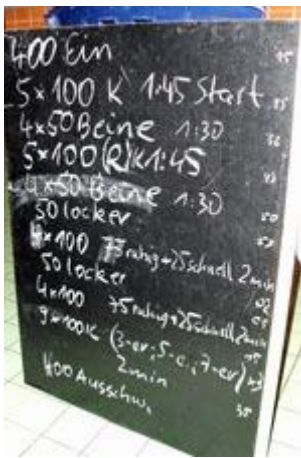 400 Ein
5x100 K 1:45 Start
4x50 Beine 1:30
5x100 (R)K 1:45
4x50 Beine 1:30
50 locker
4x100 75 ruhig+25schnell 2min
50 locker
4x100 75 ruhig+25schnell 2min
9x100K (3-er, 5-e., 7-er) x3
2min
400 Ausschw.